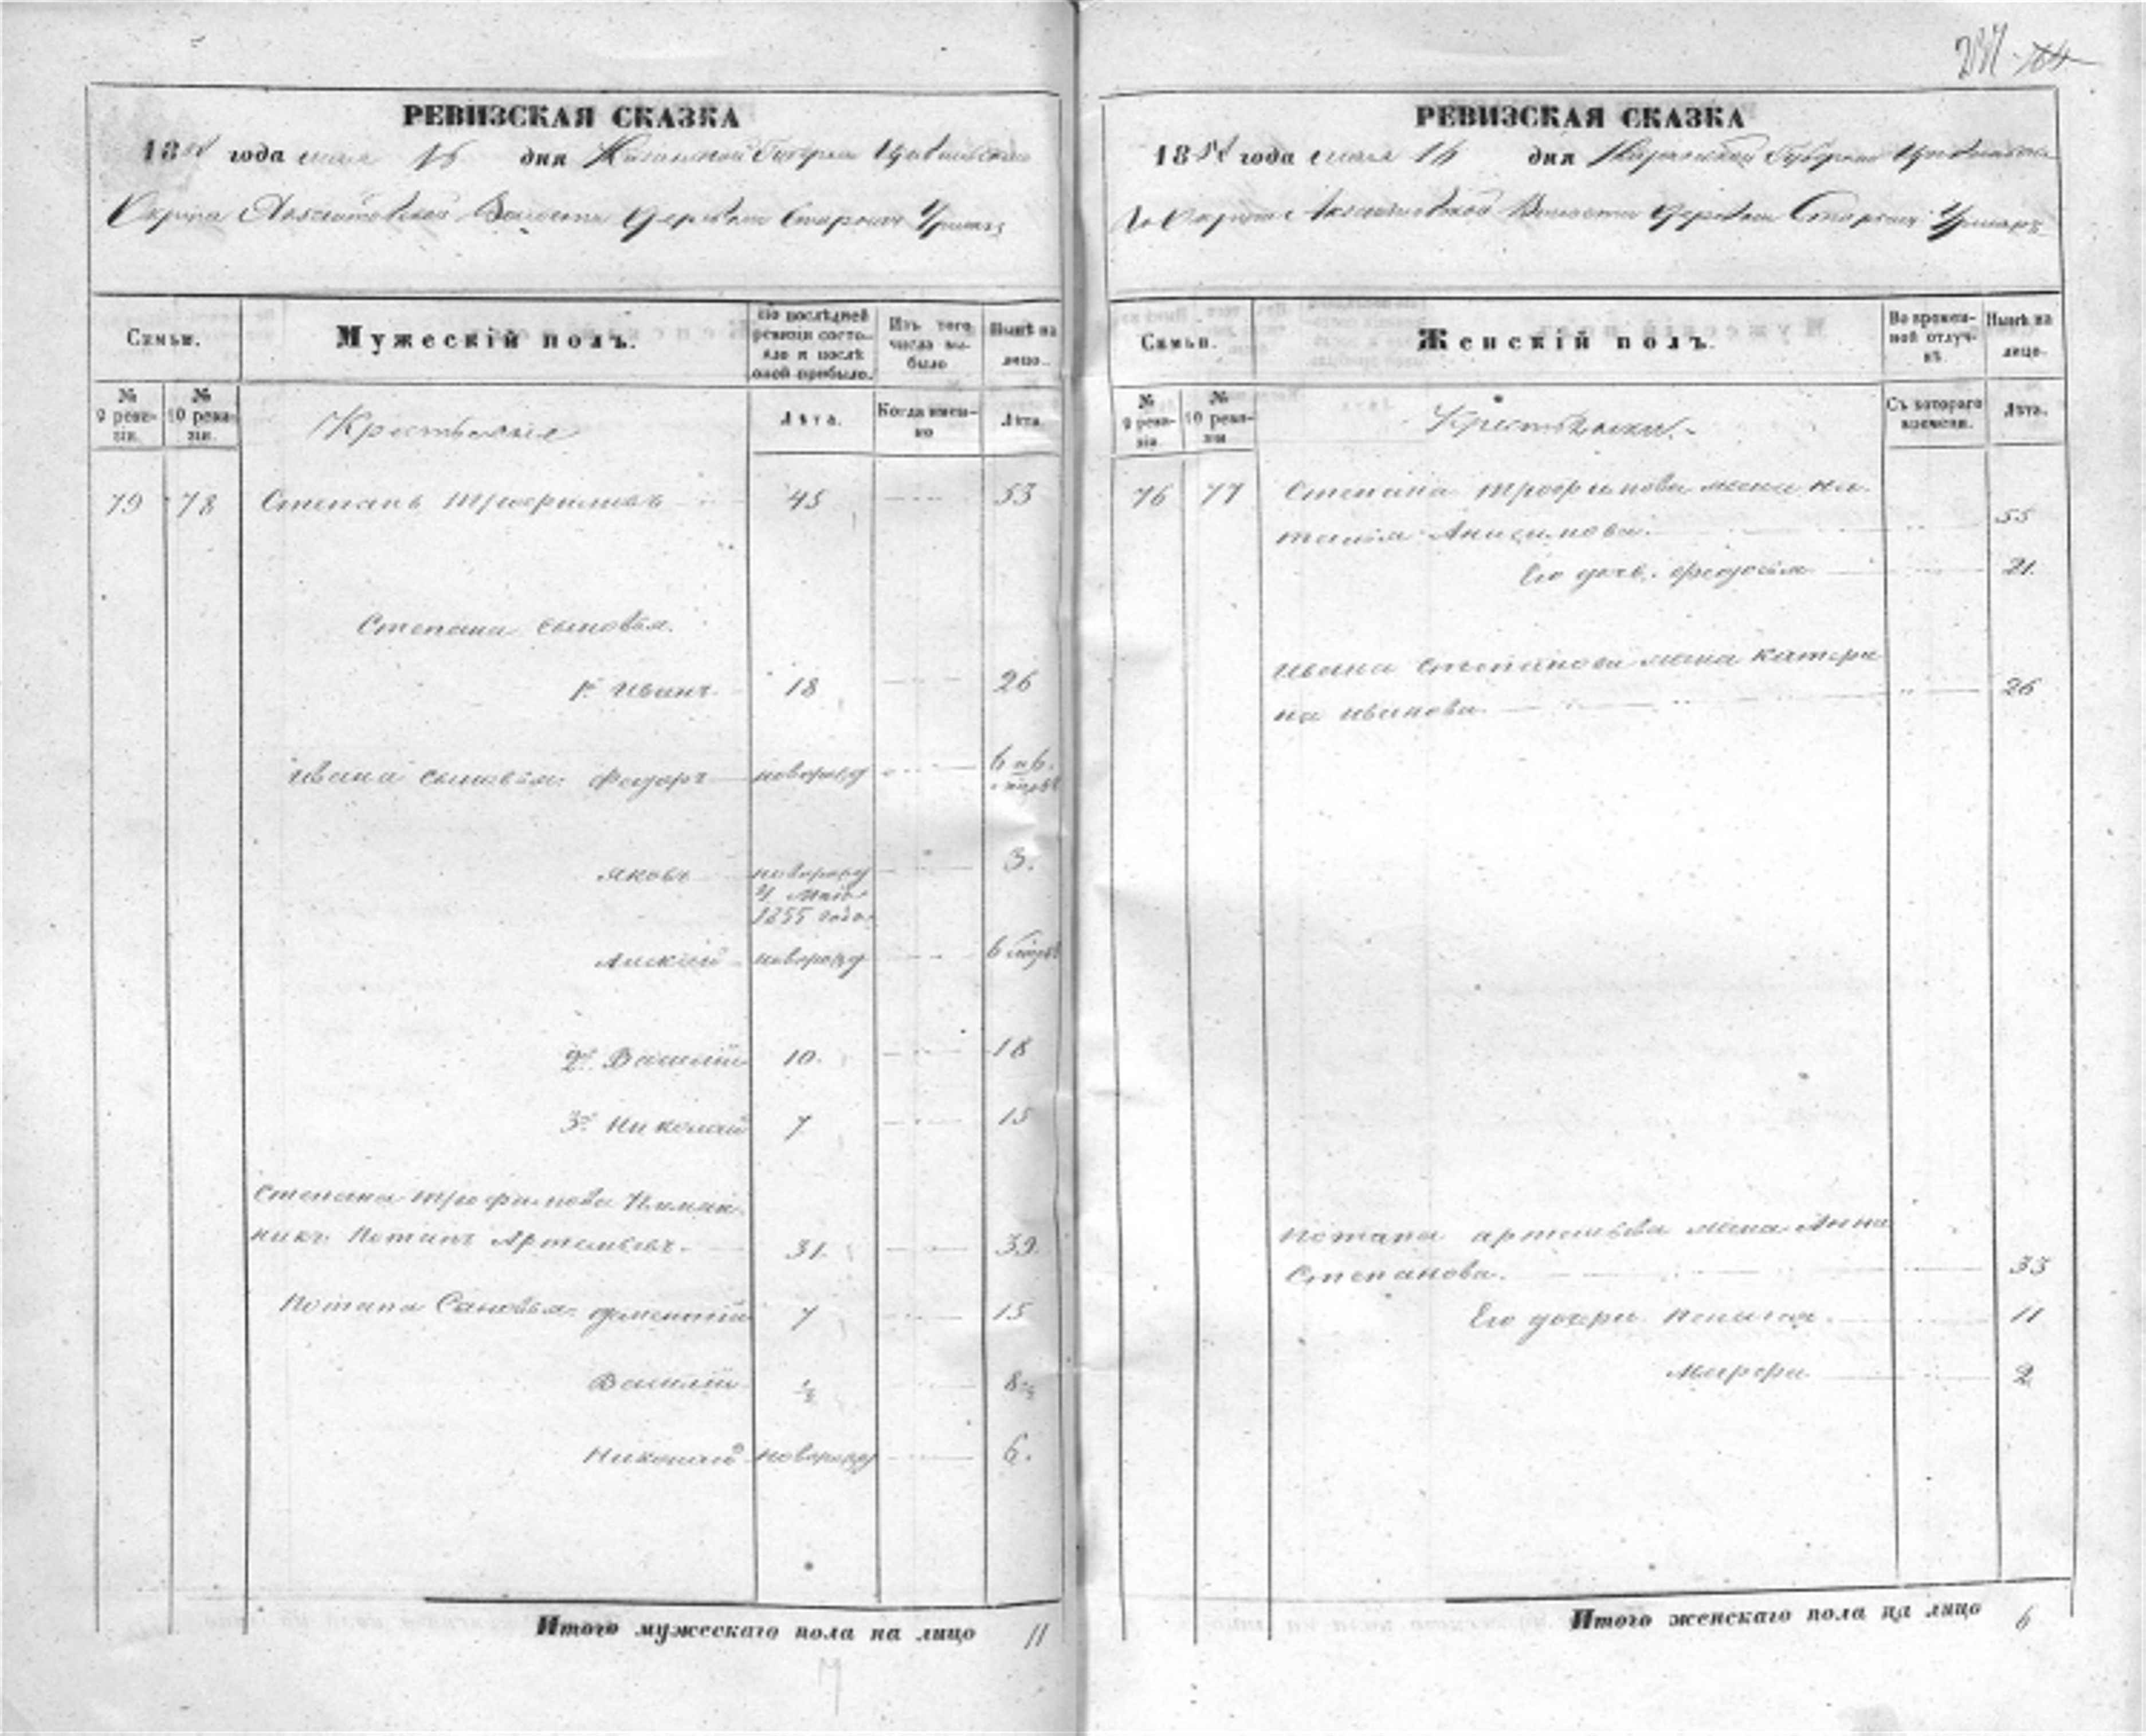 РЕВИЗСКАЯ СКАЗКА
1858 года мая 16 дня Казанской Губернии Цивильскаго
Округа Волости Деревни Старыхъ Урмаръ
Семьи.
Мужескій полъ.
По послѣдней ревизіи состояло и послѣ оной прибыло.
Изъ того числа выбыло
Нынѣ на лицо.
№ 9 ревизіи.
№ 10 ревизіи.
Крестьяне
Лѣта.
Когда именно
Лѣта.
79 78 Степанъ Трофимовъ 45 53
Степана сыновья.
1й Иванъ 18 26
Ивана сыновья: Федоръ новорожд
Яковъ новорожд 3.
Маія
1855 года
Алексѣй новорожд
2й Василій 10. 18
3й Николай 7 15
Степана Трофимова Племян
никъ Потапъ Артемьевъ. 31. 39
Потапа Сыновья: Дементій 7 15
Василій ½ 8½
Николай новорожд 6.
Итого мужескаго пола на лицо 11
РЕВИЗСКАЯ СКАЗКА
1858 года мая 16 дня Казанской Губерніи Цивильска
го Округа Волости Деревни Старыхъ Урмаръ
Семьи.
Женскій полъ.
Во временной отлучкѣ.
Нынѣ на лицо.
№ 9 ревизіи.
№ 10 ревизіи
Крестьянки.
Съ котораго времени.
Лѣта.
76 77 Степана Трофимова жена На
талія Анисимова. 55
Его дочь Федосія 21.
Ивана Степанова жена Катери
на Иванова 26
Потапа Артемьева жена Анна
Степанова. 33
Его дочери 11
2
Итого женскаго пола на лицо 6